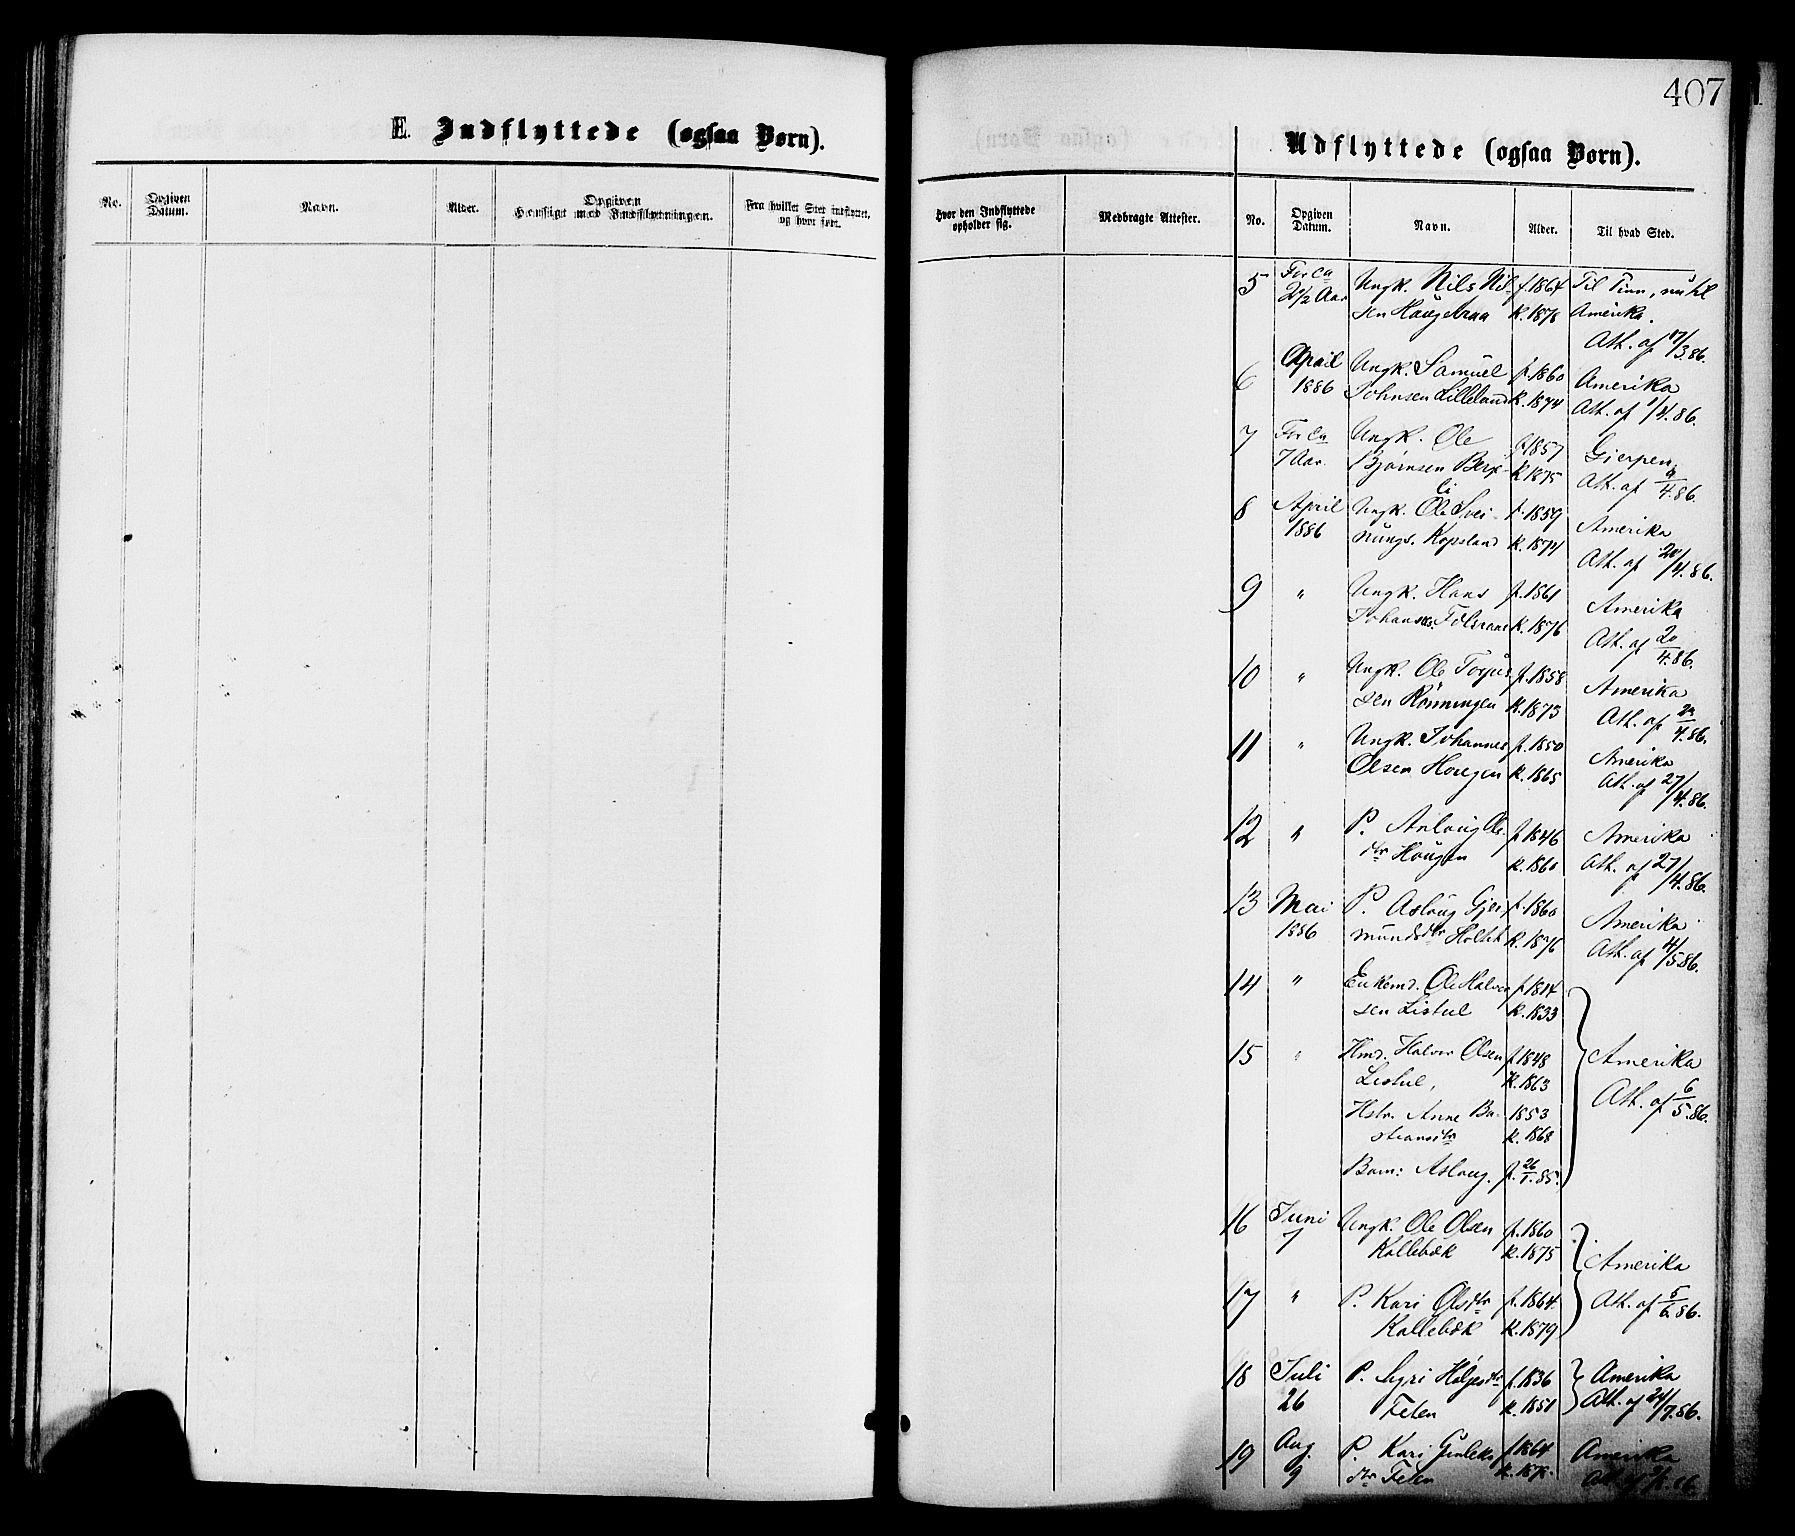 407
E. Indflyttede (ogsaa Børn).
Udflyttede (ogsaa Børn).
No.
Opgiven Datum.
Navn.
Alder.
Opgiven Hensigt med Indflytningen.
Fra hvilket Sted indflyttet, og hvor født.
Hvor den Indflyttede opholder sig.
Medbragte Attester.
No.
Opgiven Datum.
Navn.
Alder.
Til hvad Sted.
5 For ca Ungk. Nils Nil- f. 1864 Til Tinn, nu til
2 1/2 Aar sen Haugebraa k. 1878 Amerika.
Att. af 17/3.86.
6 April Ungk. Samuel f. 1860 Amerika
1886 Johnsen Lilleland k. 1874 Att. af 1/4.86.
7 For ca Ungk. Ole f. 1857 Gjerpen
7 Aar. Bjørnsen k. 1875 Att. af /4.86
8 April Ungk. Ole Svei- f. 1859 Amerika
1886 nungs. Kopsland k. 1874 Att. af 20/4.86.
9 " Ungk. Hans f. 1861 Amerika
Johans. k. 1876 Att. af 20/4.86.
10 " Ungk. Ole Torjus- f. 1858 Amerika
sen Rønningen k. 1873 Att. af /4.86.
11 " Ungk. Johannes f. 1850 Amerika
Olsen Hougen k. 1865 Att. af 27/4.86.
12 " P. Anlaug Ols- f. 1846 Amerika
dtr Hougen k. 1860 Att. af 27/4.86.
13 Mai P. Aslaug Gjer- f. 1860 Amerika
1886 mundsdtr Holtet k. 1876 Att. af 4/5.86.
14 " Enkemd. Ole Halvor- f. 1814
sen Listul k. 1833
15 " Hmd. Halvor Olsen f. 1848 Amerika
Listul, k. 1863 Att. af 6/5.86.
Hstr. Anne Ba- 1853
stiansdtr k. 1868
Barn: Aslaug. f. 26/1.85.
16 Juni Ungk. Ole Olsen f. 1860
7 Kallebæk k. 1875 Amerika
17 " P. Kari Olsdtr f. 1864. Att. af 5/6.86.
Kallebæk k. 1879
18 Juli P. Syri Hølgesdtr f. 1836 Amerika
26 Felen k. 1851 Att. af 24/7.86.
19 Aug. P. Kari Gunleks- f. 1864 Amerika
9 dtr Felen